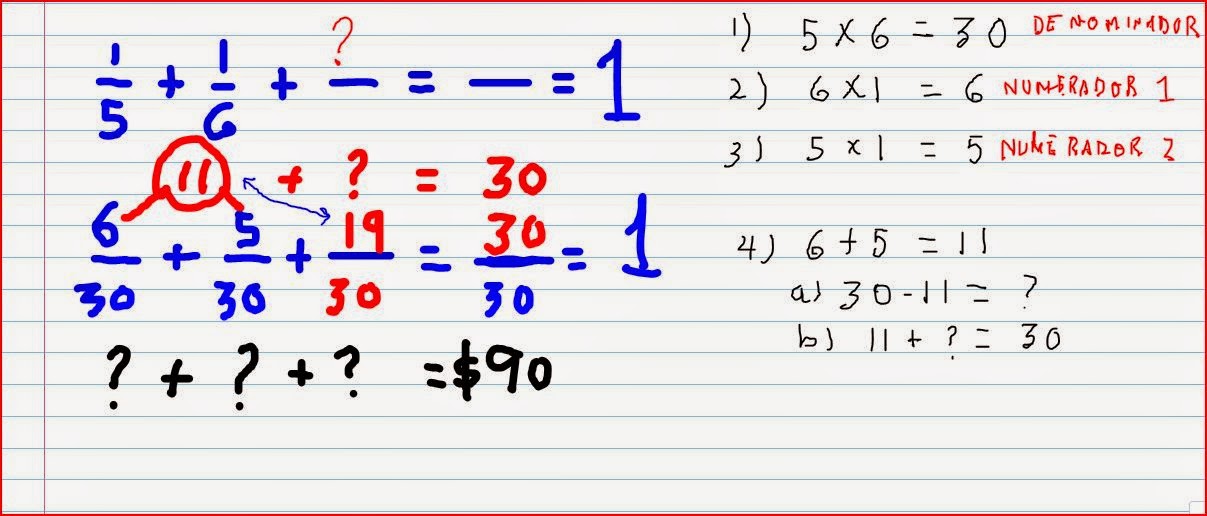 ?
1/5 + 1/6 + — = — = 1
11 + ? = 30
6/30 + 5/30 + 19/30 = 30/30 = 1
? + ? + ? = $90
1) 5 x 6 = 30 DENOMINADOR
2) 6 x 1 = 6 NUMERADOR 1
3) 5 x 1 = 5 NUMERADOR 2
4) 6 + 5 = 11
a) 30 - 11 = ?
b) 11 + ? = 30